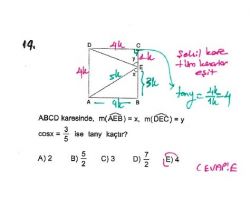 19.
D 4k C
y 1k
E
x
4k 5k 3k
A 4k B
Şekil kare
tüm kenarlar
eşit
tany = 4k/1k = 4
ABCD karesinde, m(AEB) = x, m(DEC) = y
cosx = 3/5 ise tany kaçtır?
A) 2 B) 5/2 C) 3 D) 7/2 E) 4
CEVAP: E